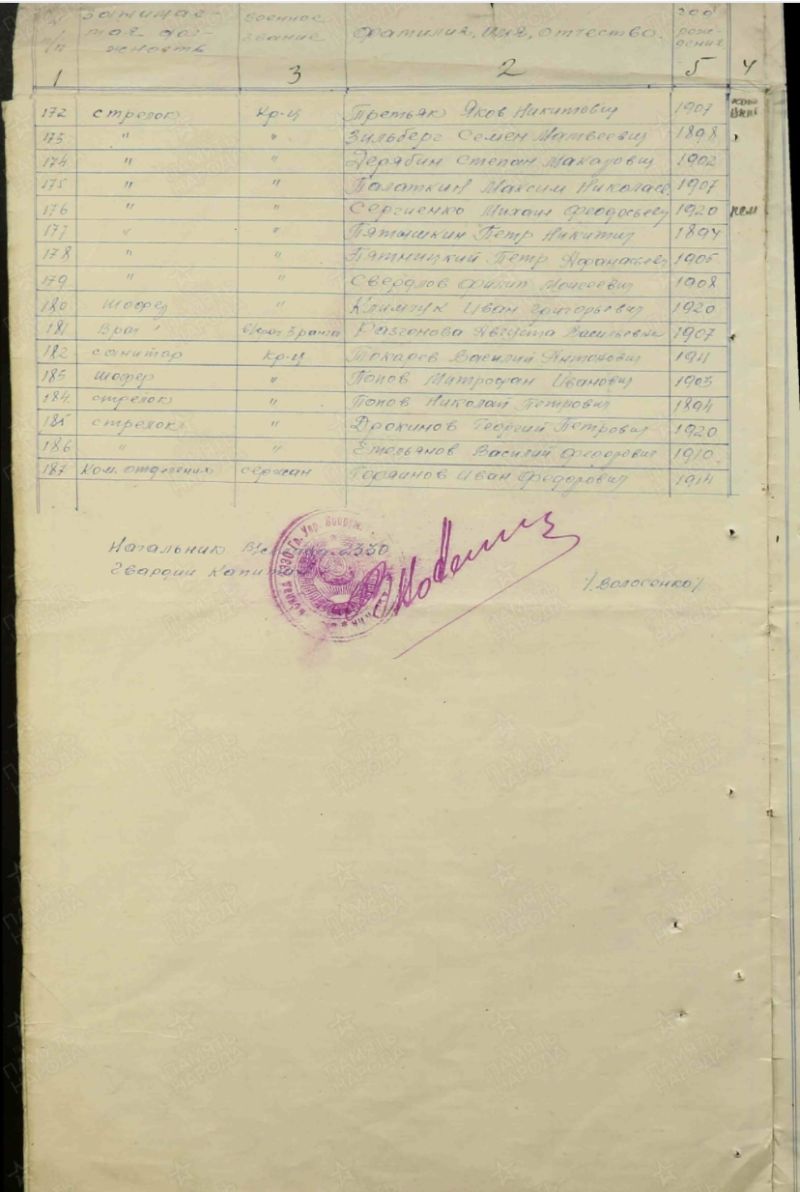 № п/п занимаемая должность военное звание фамилия, имя, отчество. год рождения
1 3 2 5 4
172 стрелок Кр-ц Третьяк Яков Никитович 1907
173 " " Зильберг Семен Матвеевич 1898
174 " " Дерябин Степан Макарович 1902
175 " " Палаткин Максим 1907
176 " " Сергиенко Михаил 1920
177 " " Пяташкин Петр Никитич 1894
178 " " Пятницкий Петр 1905
179 " " Свердлов Филип Моисеевич 1908
180 Шофер " Климчук Иван Григорьевич 1920
181 Врач 3 ранга Разгонова Августа 1907
182 санитар Кр-ц Токарев Василий Антонович 1911
183 шофер " Попов Митрофан Иванович 1903
184 стрелок " Попов Николай Петрович 1894
185 стрелок " Георгий Петрович 1920
186 " " Емельянов Василий Федорович 1910
187 Ком. отделения сержан Горяинов Иван Федорович 1914
Начальник 2330
Гвардии Капитан
/Волосенко/
ПАМЯТЬ НАРОДА